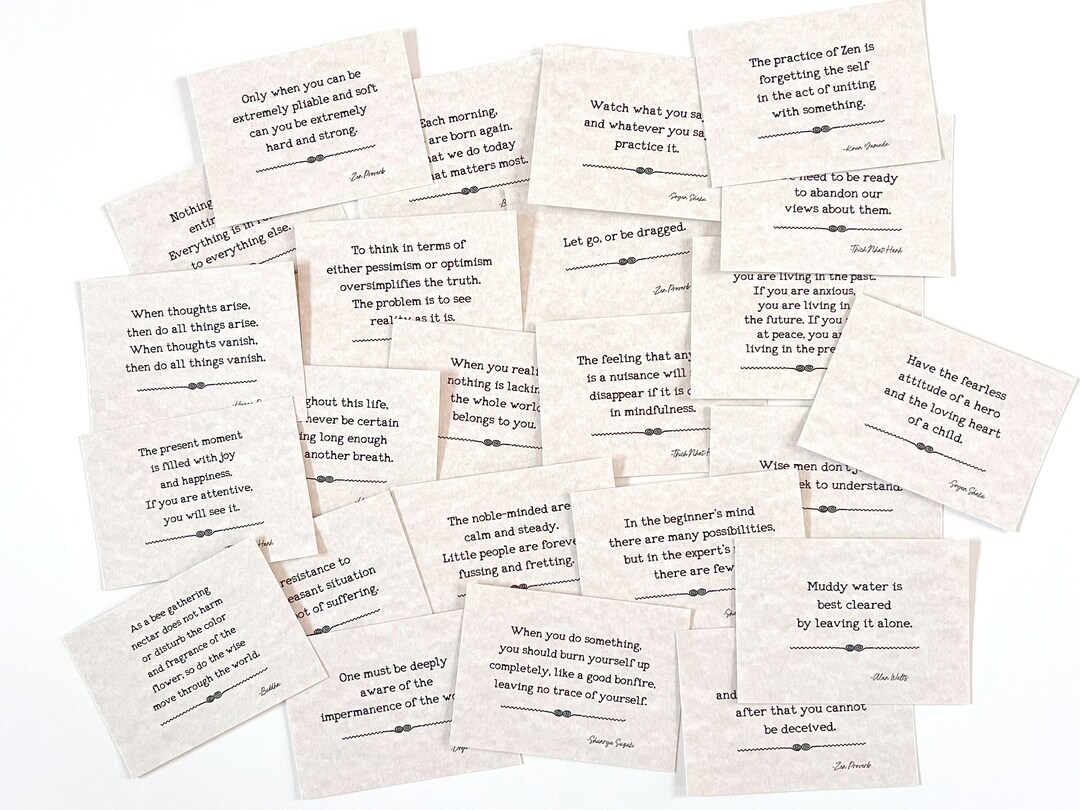 Only when you can be
extremely pliable and soft
can you be extremely
hard and strong.
-Zen Proverb
Each morning,
are born again.
we do today
matters most.
Watch what you
and whatever you
practice it.
-Soyen Shaku
The practice of Zen is
forgetting the self
in the act of uniting
with something.
-Koun Yamada
Nothing
Everything is in
to everything else.
need to be ready
to abandon our
views about them.
-Thich Nhat Hanh
To think in terms of
either pessimism or optimism
oversimplifies the truth.
The problem is to see
as it is.
Let go, or be dragged.
-Zen Proverb
you are living in the past.
If you are anxious,
you are living in
the future. If you
at peace, you
living in the
When thoughts arise,
then do all things arise.
When thoughts vanish,
then do all things vanish.
When you
nothing is
the whole world
belongs to you.
The feeling that
is a nuisance will
disappear if it is
in mindfulness.
-Thich Nhat
Have the fearless
attitude of a hero
and the loving heart
of a child.
-Soyen Shaku
this life,
never be certain
long enough
another breath.
The present moment
is filled with joy
and happiness.
If you are attentive,
you will see it.
Wise men don't
to understand.
The noble-minded are
calm and steady.
Little people are
fussing and fretting.
In the beginner's mind
there are many possibilities,
but in the expert's
there are few
resistance to
situation
of suffering.
Muddy water is
best cleared
by leaving it alone.
-Alan Watts
As a bee gathering
nectar does not harm
or disturb the color
and fragrance of the
flower, so do the wise
move through the world.
-Buddha
One must be deeply
aware of the
impermanence of the
When you do something,
you should burn yourself up
completely, like a good bonfire,
leaving no trace of yourself.
-Shunryu Suzuki
and
after that you cannot
be deceived.
-Zen Proverb